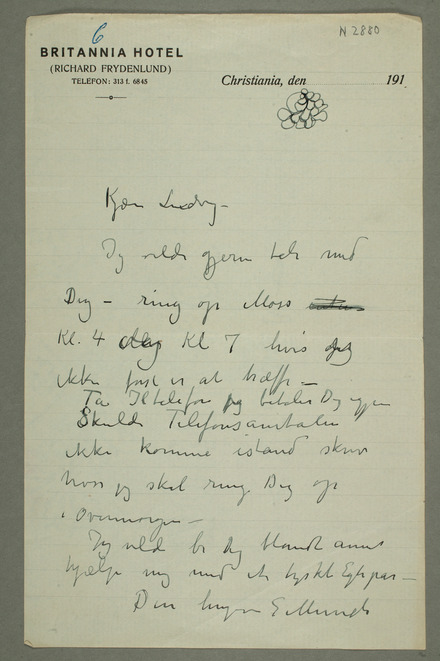 6
N 2880
BRITANNIA HOTEL
(RICHARD FRYDENLUND)
TELEFON: 313 f. 6845
Christiania, den 191
Kjære Ludvig –
Jeg vilde gjerne tale med
Dig – ring op Moss
Kl. 4 Kl 7 hvis jeg
ikke først er at træffe –
Ta Iltelefon jeg betaler Dig igjen
Skulde Telefonsamtalen
ikke komme istand skriv
hvor jeg skal ringe Dig op
i Overmorgen –
Jeg vilde be Dig blandt annet
hjælpe mig med et tyskt
Din hengivne E Munch